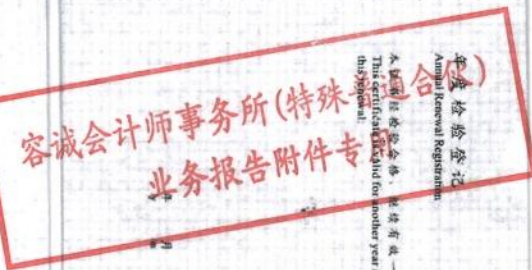 年度检验登记
Annual Renewal Registration
本证书经检验合格，继续有效一
This certificate is valid for another year
this renewal.
年 月
容诚会计师事务所(特殊普通合伙)
业务报告附件专用